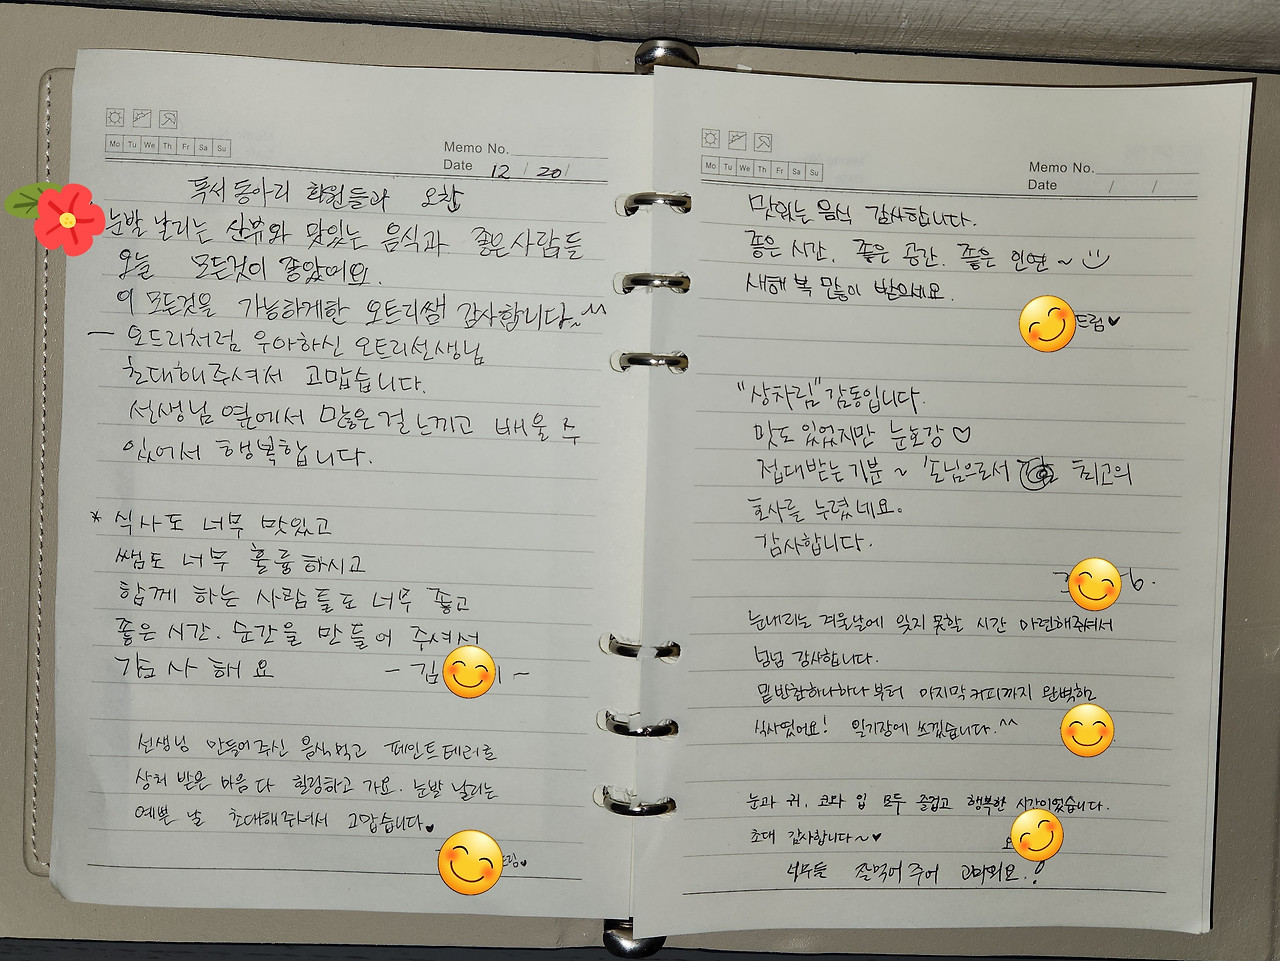 Mo Tu We Th Fr Sa Su
Memo No.
Date 12 / 20 /
독서 동아리 회원들과 오찬
눈발 날리는 산뷰와 맛있는 음식과 좋은사람들
오늘 모든것이 좋았어요.
이 모든것을 가능하게한 오트리쌤 감사합니다~^^
— 오드리처럼 우아하신 오트리선생님
초대해주셔서 고맙습니다.
선생님 옆에서 많은걸 느끼고 배울 수
있어서 행복합니다.
* 식사도 너무 맛있고
쌤도 너무 훌륭하시고
함께 하는 사람들도 너무 좋고
좋은 시간. 순간을 만들어 주셔서
감사해요 - 김
선생님 만들어주신 음식먹고 페인트테러로
상처 받은 마음 다 힐링하고 가요. 눈발 날리는
예쁜 날 초대해주셔서 고맙습니다♥
드림♥
Mo Tu We Th Fr Sa Su
Memo No.
Date / /
맛있는 음식 감사합니다.
좋은 시간. 좋은 공간. 좋은 인연 ~
새해 복 많이 받으세요.
드림♥
"상차림" 감동입니다.
맛도 있었지만 눈호강 ♡
접대받는기분 ~ 손님으로서 최고의
호사를 누렸네요.
감사합니다.
눈내리는 겨울날에 잊지 못할 시간 마련해주셔서
넘넘 감사합니다.
밑반찬하나하나부터 마지막커피까지 완벽한
식사였어요! 일기장에 쓰겠습니다.^^
눈과 귀, 코와 입 모두 즐겁고 행복한 시간이었습니다.
초대 감사합니다~♥
잘먹어주어 고마워요.!